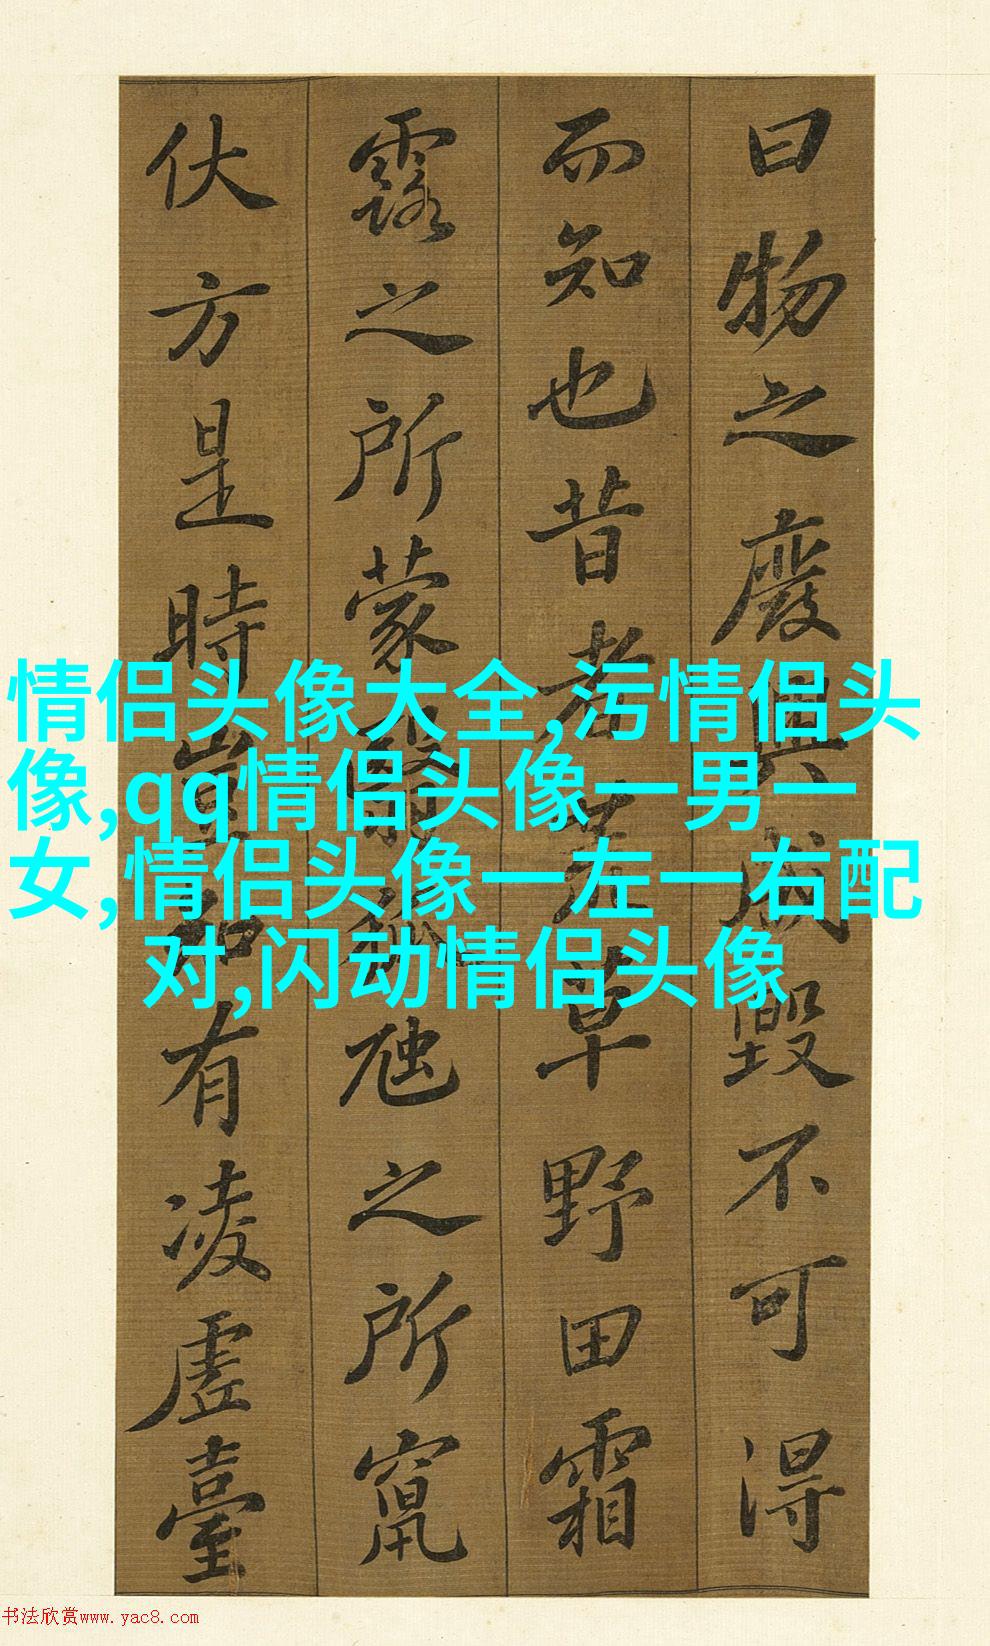 曰物之廢興成毀不可得
而知也昔者荒草野田霜
露之所蒙翳狐虺之所竄
伏方是時豈知有凌虛臺
情侣头像大全,污情侣头
像,qq情侣头像一男一
女,情侣头像一左一右配
对,闪动情侣头像
书法欣赏www.yac8.com